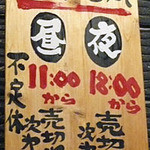 昼
11:00
から
夜
18:00
から
不定休
売切
次
売切
次